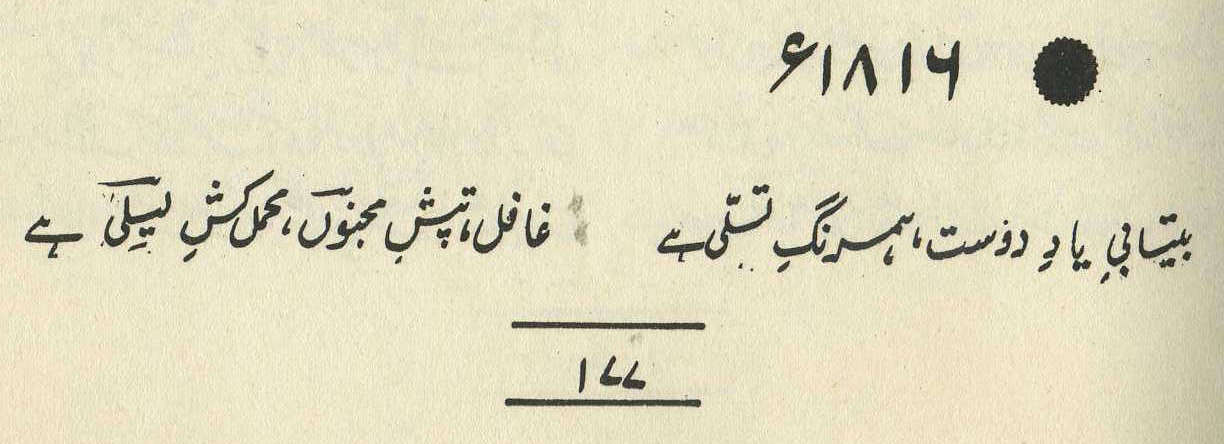 ۱۸۱۶ء
بیتابیِ یادِ دوست، ہمرنگِ تسلّی ہے غافل، تپشِ مجنوںؔ، محمل کشِ لیلیٰؔ ہے
۱۷۷